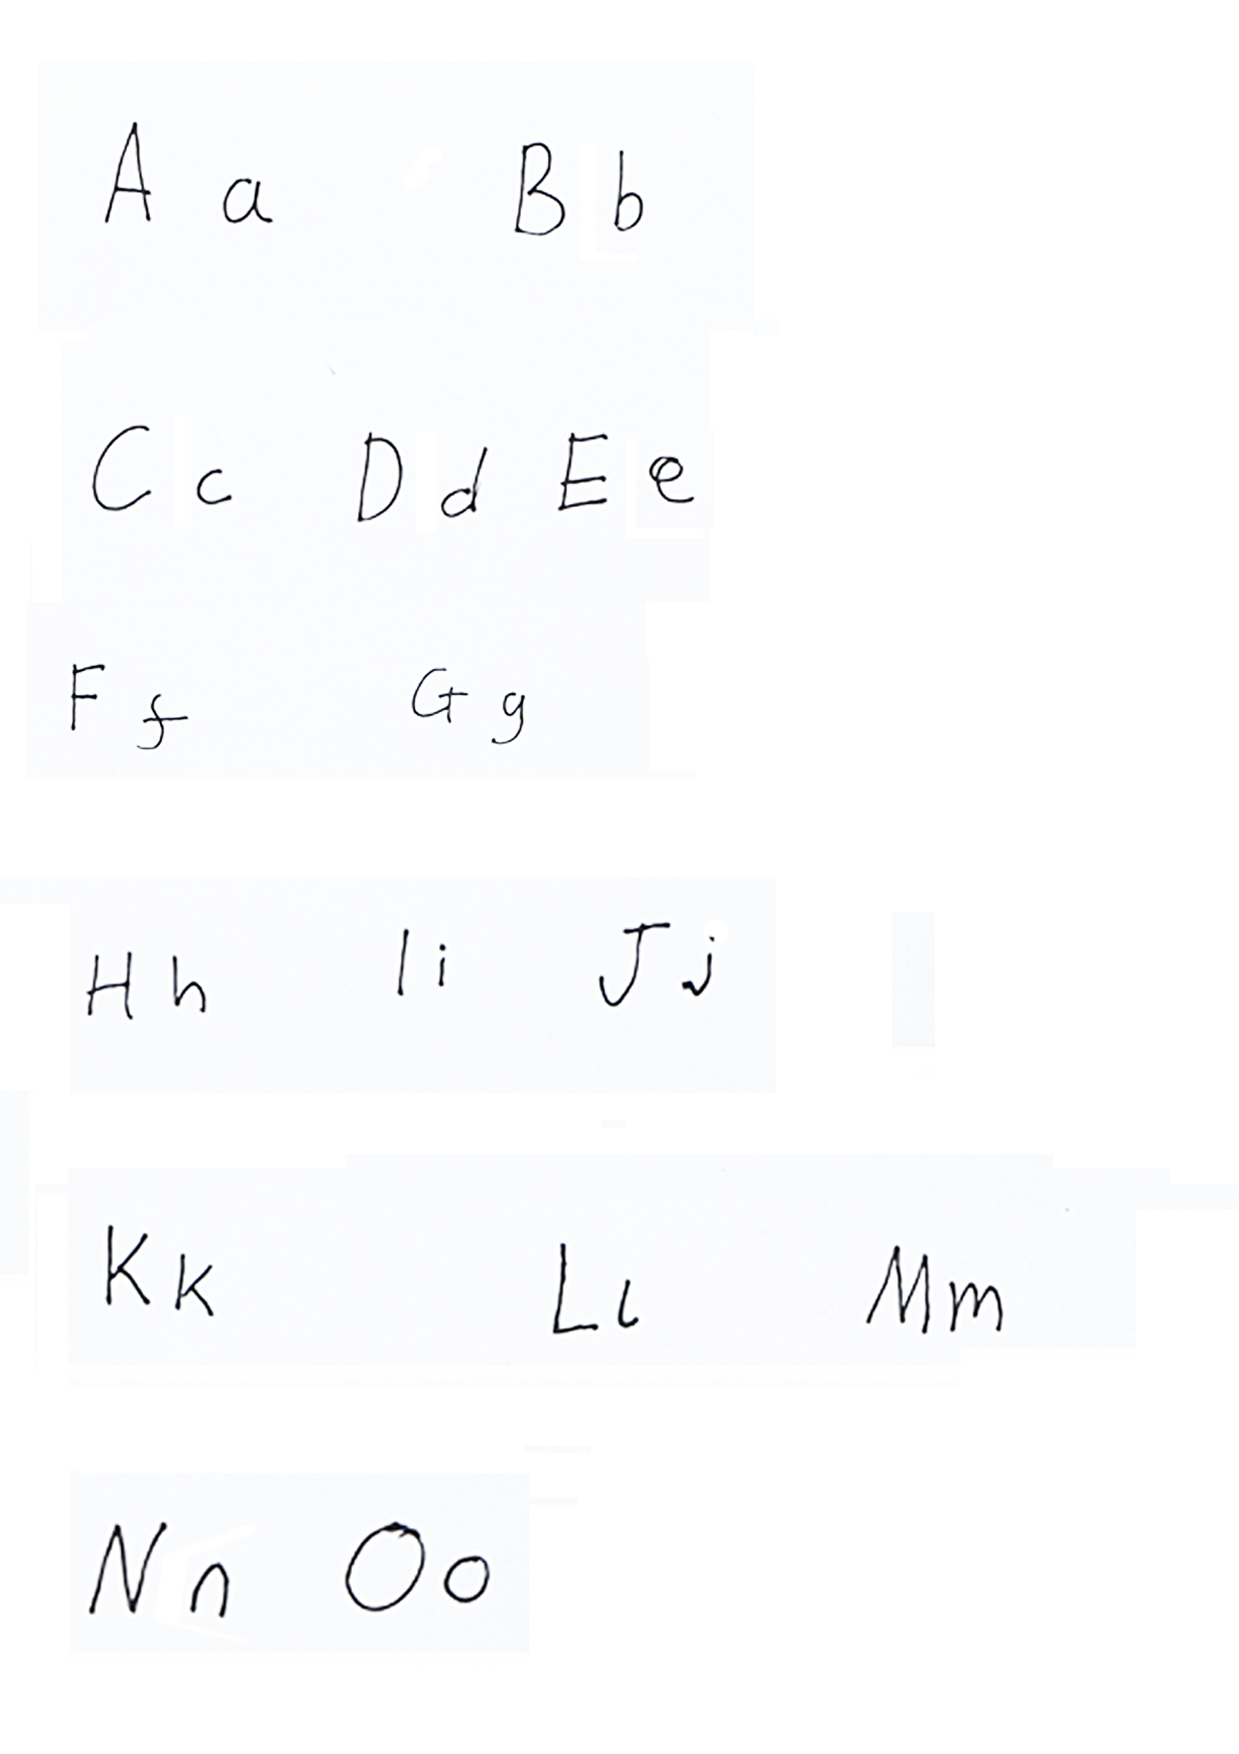 A a B b
C c D d E e
F f G g
H h I i J j
K k L l M m
N n O o